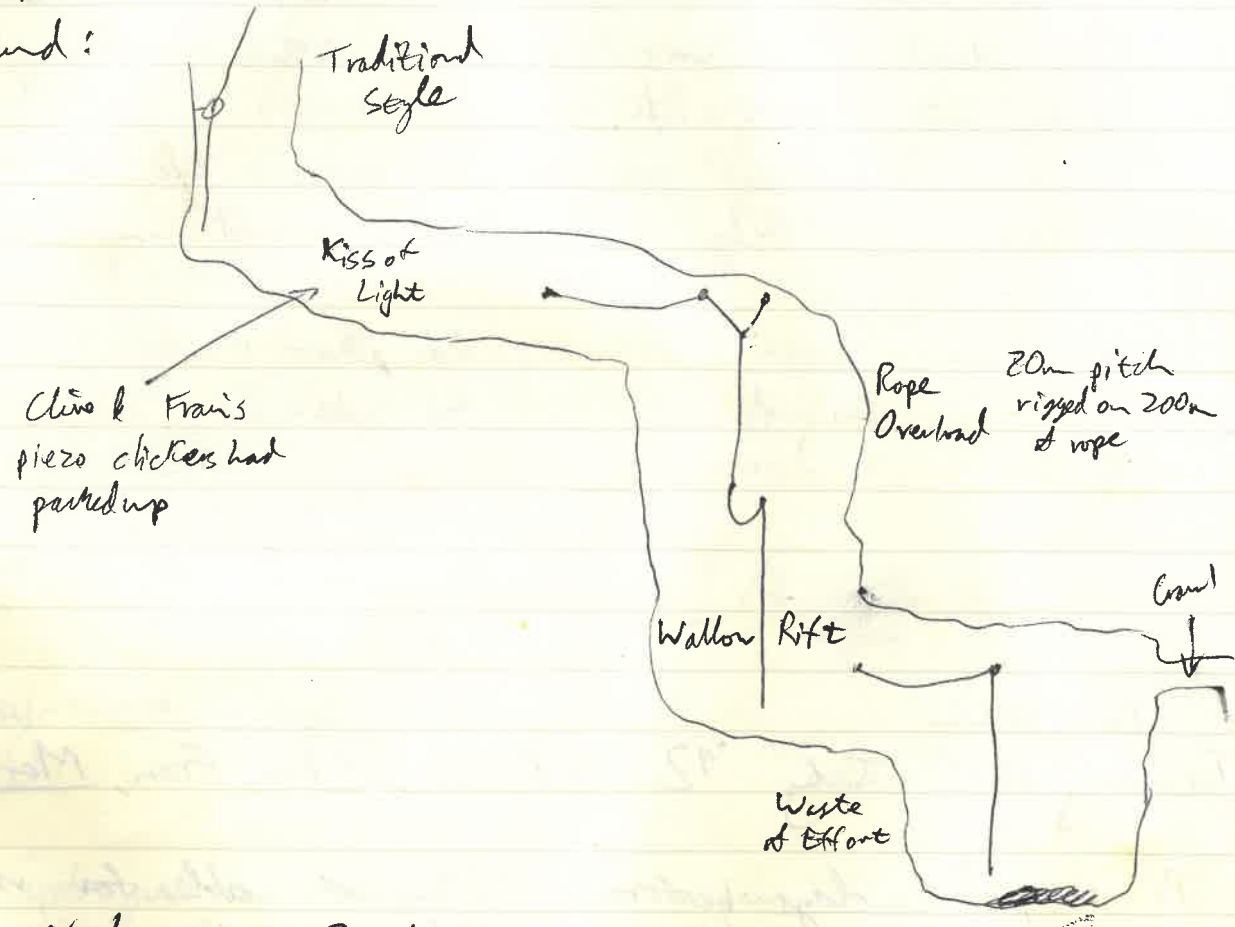 Traditional
Style
Kiss of
Light
Clive & Fran's
piezo clickers had
packed up
Rope
Overload
20m pitch
rigged on 200m
of rope
Crawl
Wallow Rift
Waste
of Effort